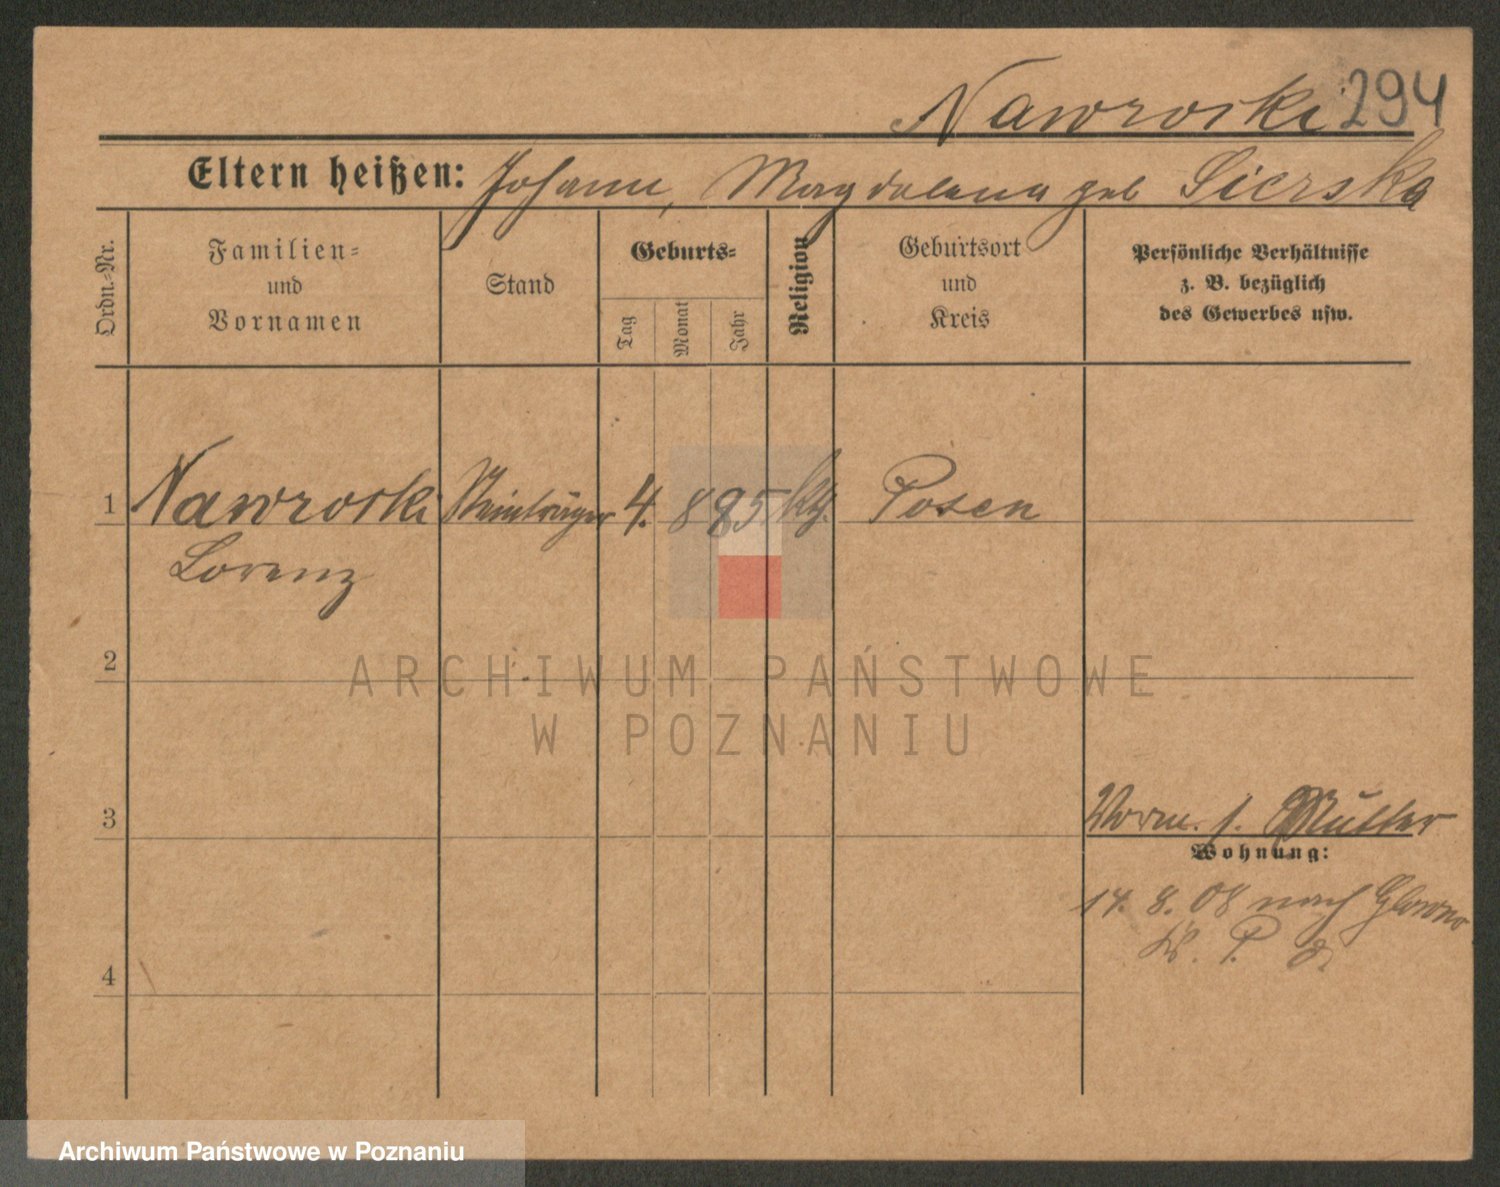 Nawroski 294
Eltern heißen: Johann, Magdalena geb Sierska
Ordn.-Nr.
Familien-
und
Vornamen
Stand
Geburts-
Tag
Monat
Jahr
Religion
Geburtsort
und
Kreis
Persönliche Verhältnisse
z. B. bezüglich
des Gewerbes usw.
1 Nawroski Steinträger 4. 8 85 kth. Posen
Lorenz
2
ARCHIWUM PAŃSTWOWE
W POZNANIU
Vorm. s. Mutter
3
Wohnung:
14. 8. 08 nach Glowno
4
Archiwum Państwowe w Poznaniu